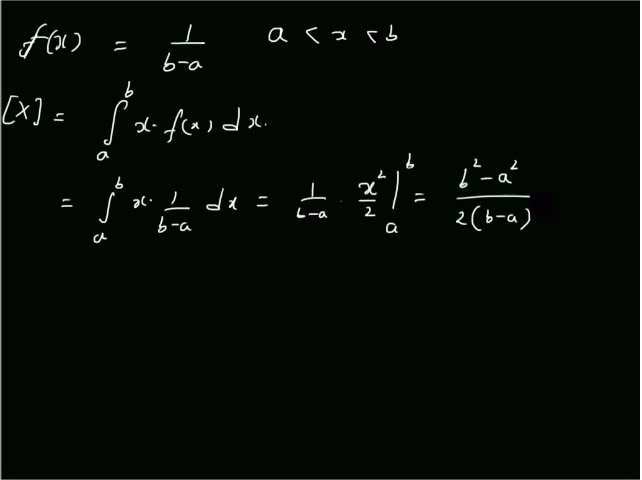 f(x) = 1/(b-a) a < x < b
[X] = ∫_a^b x · f(x) dx.
= ∫_a^b x · 1/(b-a) dx = 1/(b-a) · x²/2 |_a^b = (b²-a²)/(2(b-a))